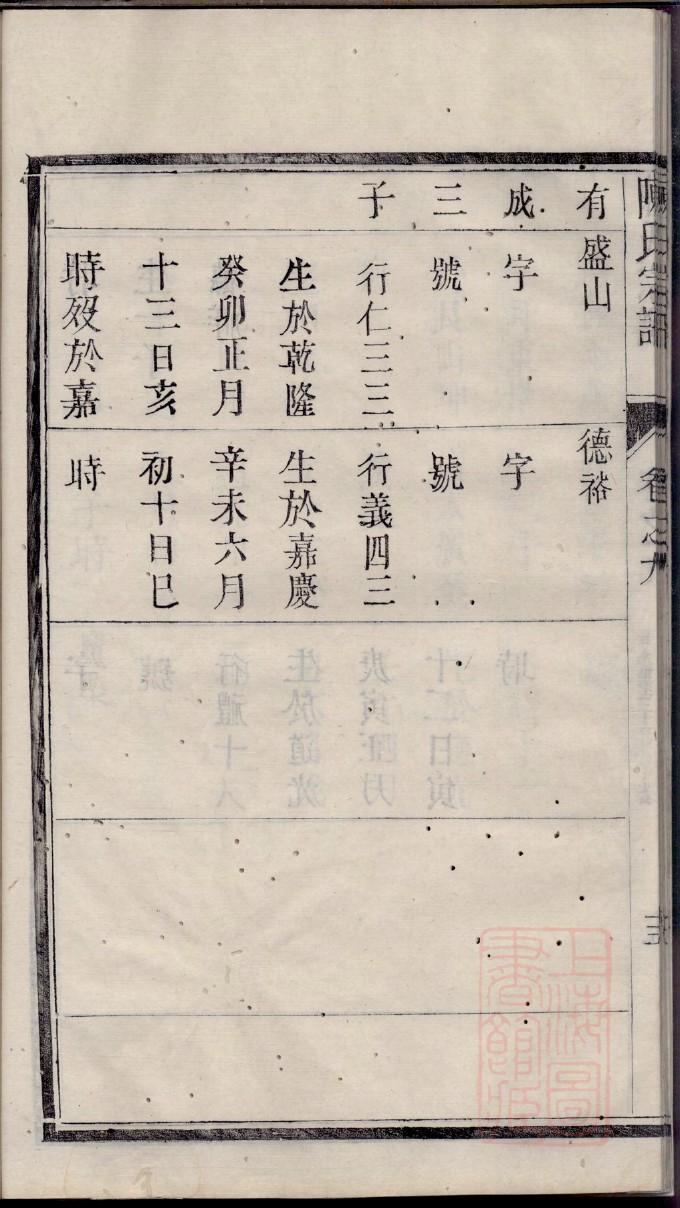 有成三子
盛山
字
號
行仁三三
生於乾隆
癸卯正月
十三日亥
時歿於嘉
德裕
字
號
行義四三
生於嘉慶
辛未六月
初十日巳
時
氏宗譜
卷之九
上海圖
書館藏